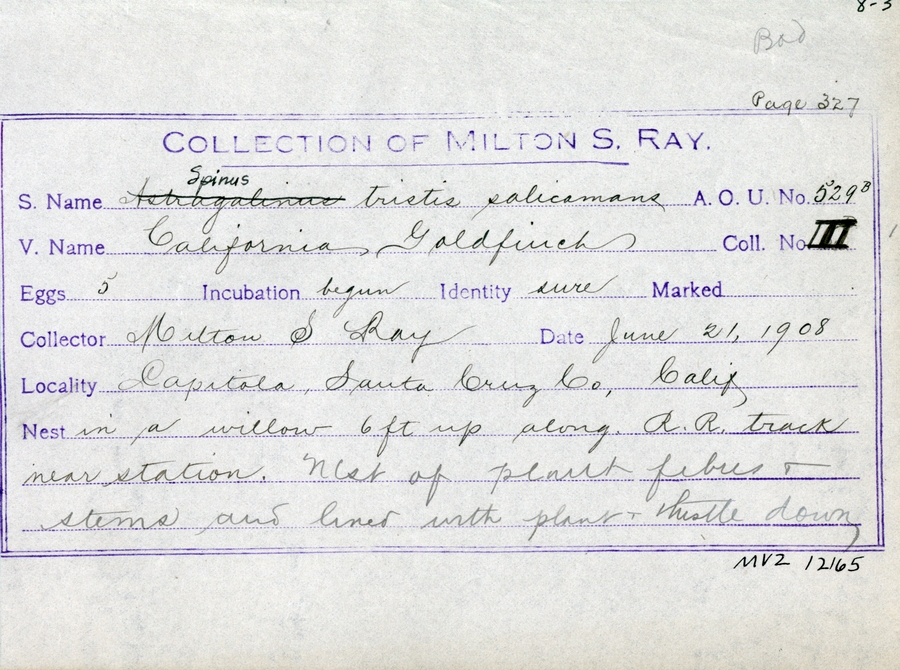 8-3
Bad
Page 327
COLLECTION OF MILTON S. RAY.
Spinus
S. Name Astragalinus tristis salicamans A. O. U. No. 529B
V. Name California Goldfinch Coll. No. III
Eggs 5 Incubation begun Identity sure Marked
Collector Milton S Ray Date June 21, 1908
Locality Capitola, Santa Cruz Co, Calif
Nest in a willow 6ft up along R.R. track
near station. Nest of plant febres +
stems and lined with plant + thistle down
MVZ 12165